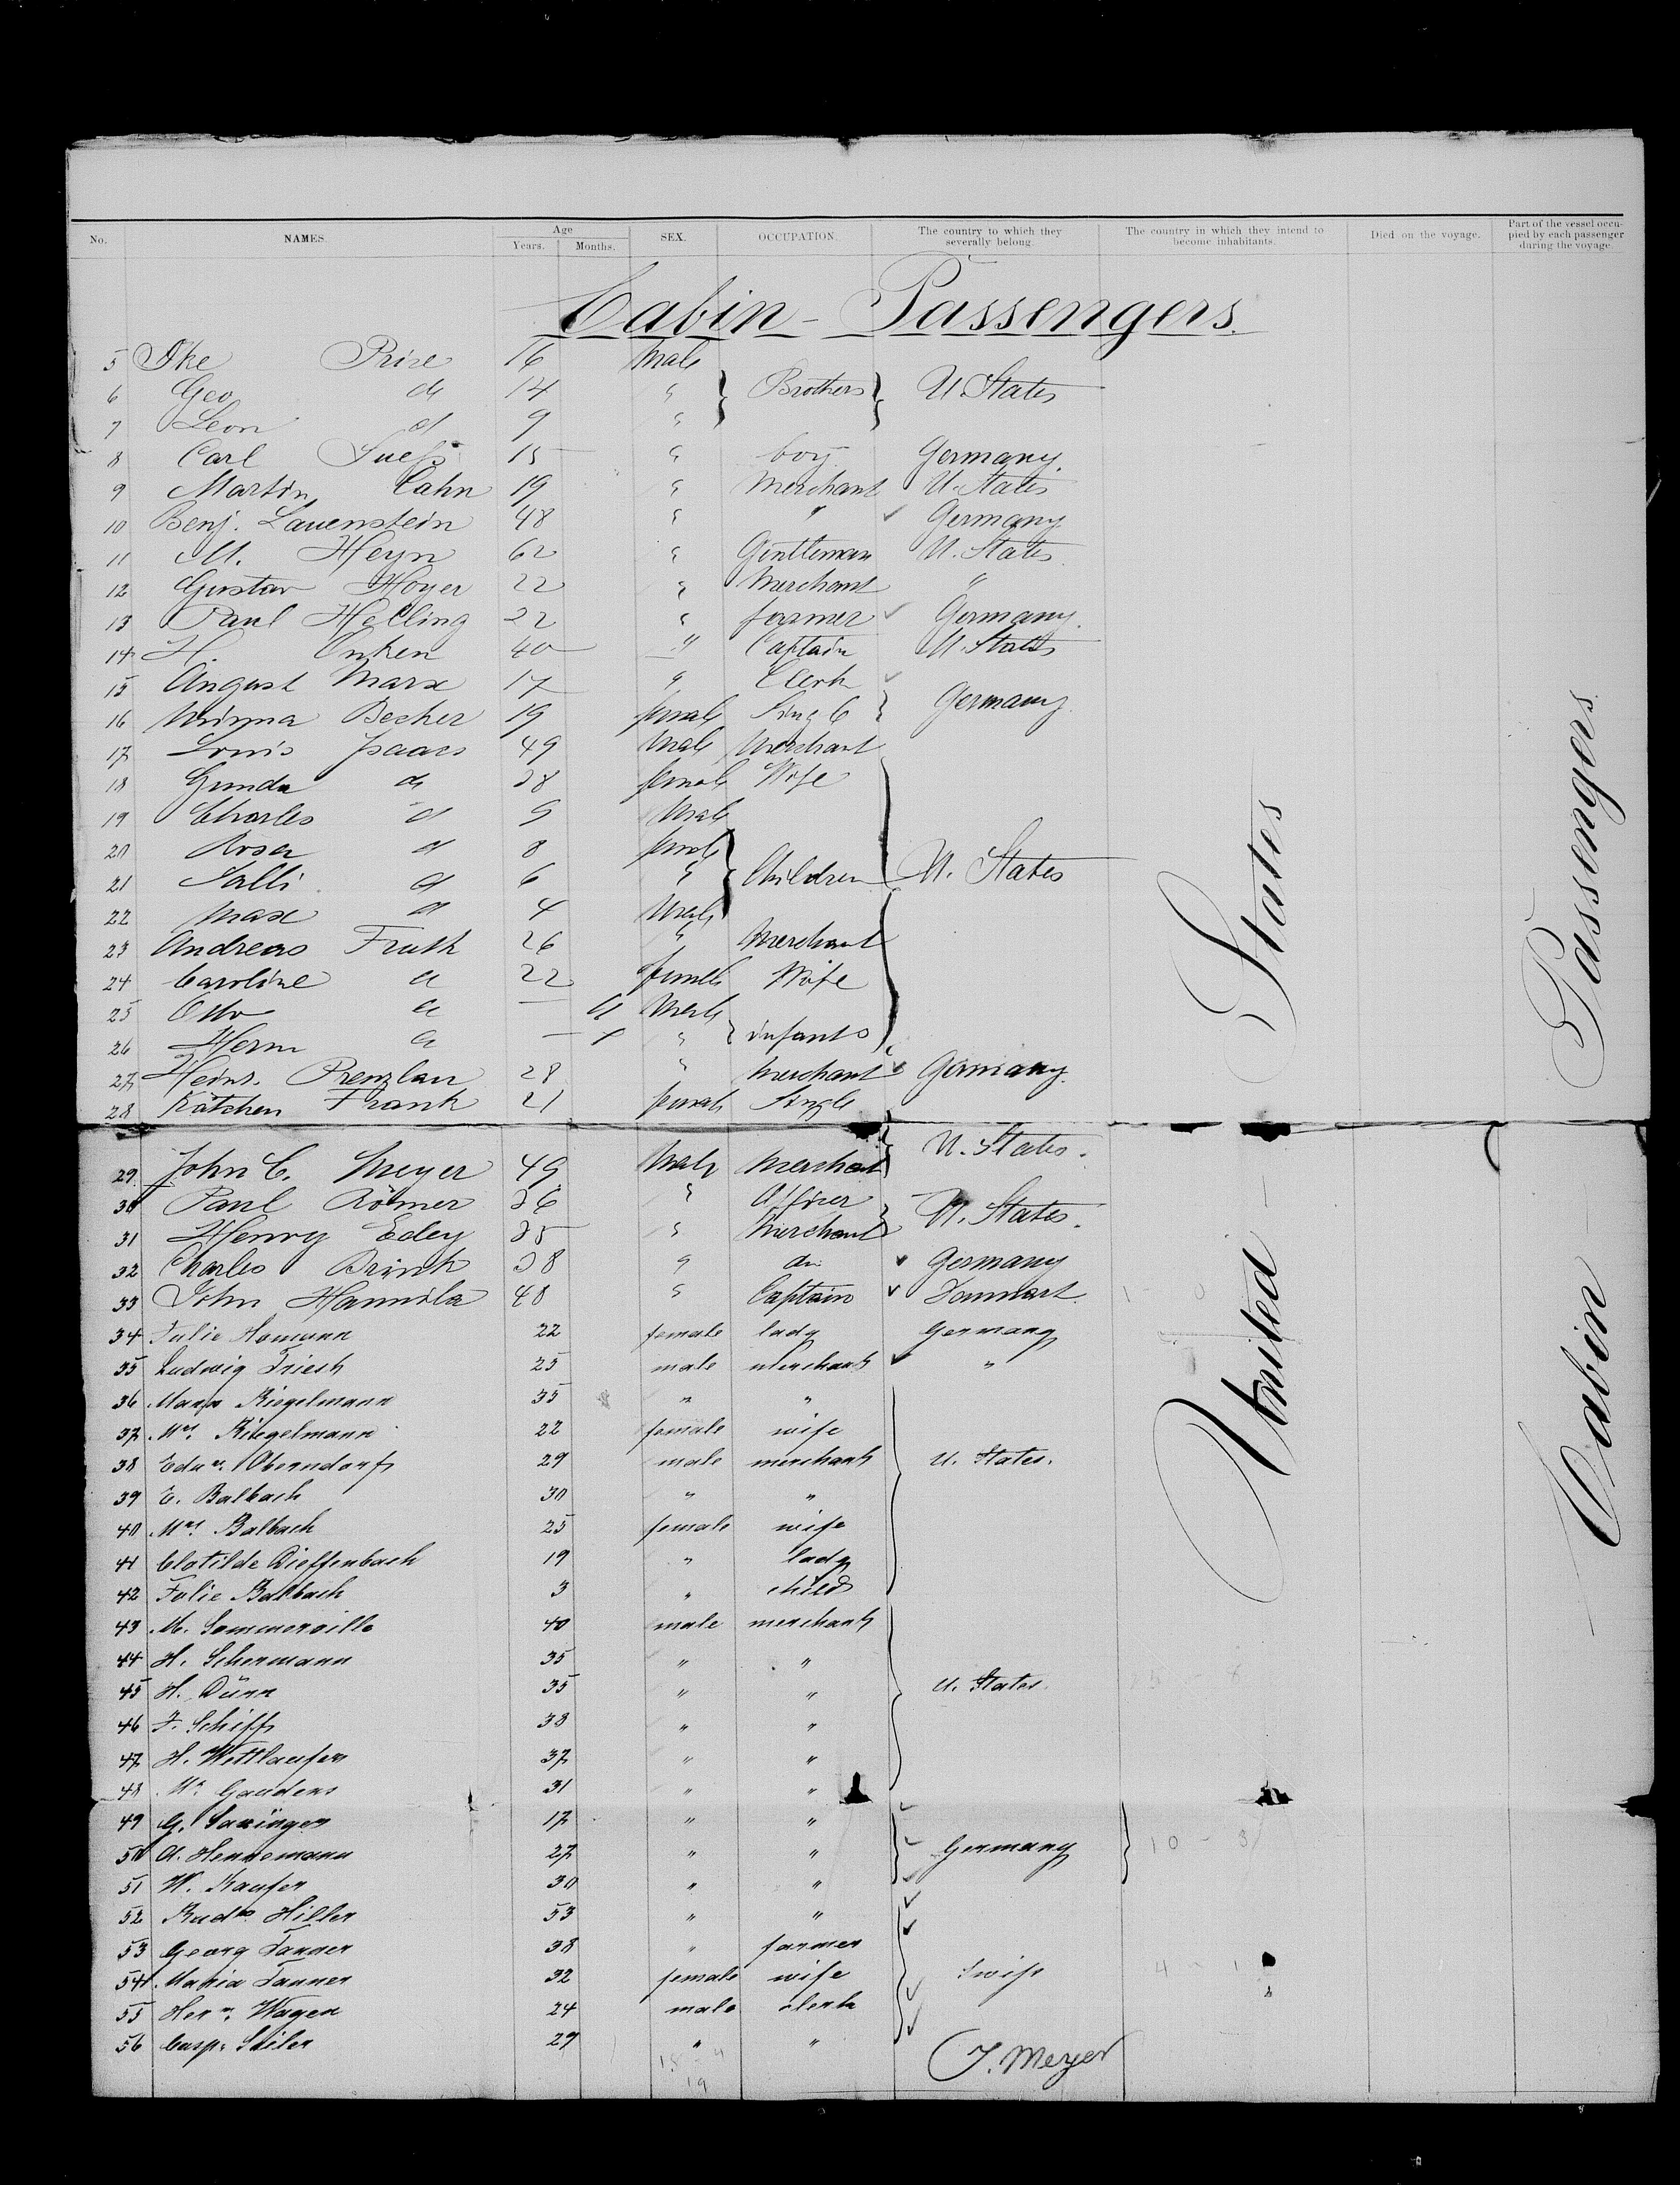 No. NAMES. Age Years. Months. SEX. OCCUPATION. The country to which they severally belong. The country in which they intend to become inhabitants. Died on the voyage. Part of the vessel occupied by each passenger during the voyage.
Cabin-Passengers.
5 Ike 16 Male
6 Geo do 14 " Brothers U. States
7 Leon d 9 "
8 Carl Sueß 15 " boy Germany.
9 Martin Cahn 19 " Merchant U. States
10 Benj. Lauenstein 48 " " Germany.
11 M. Heyn 62 " Gentleman U. States
12 Gustav Hoyer 22 " Merchant "
13 Paul Helling 22 " farmer Germany.
14 H. Onken 40 " Captain U. States
15 August Marx 17 " Clerk
16 Minna Becker 19 female Single Germany.
17 Louis Isaacs 49 Male Merchant
18 do 28 female Wife
19 Charles d 9 Male
20 Rosa d 8 female
21 Salli d 6 " Children U. States
22 Max d 4 Male
23 Andreas Fruth 26 " Merchant
24 Caroline d 22 female Wife
25 Otto d — Male
26 Herm d — " infants
27 Heinr. Prenzlau 28 " Merchant Germany.
28 Kätchen Frank 21 female Single
29 John C. Meyer 49 Male Merchant U. States.
30 Paul Römer 26 " Officer
31 Henry Edey 25 " Merchant U. States.
32 Charles Brink 28 " do Germany
33 John 48 " Captain
34 Julie Homann 22 female lady Germany
35 Ludwig Triesch 25 male merchant "
36 Riegelmann 35 " "
37 Mrs. Riegelmann 22 female wife
38 Edw. Oberndorf 29 male merchant U. States.
39 E. Balbach 30 " "
40 Mrs. Balbach 25 female wife
41 Clotilde Dieffenbach 19 " lady
42 Julie Balbach 3 " child
43 M. Sommerville 40 male merchant
44 H. Schermann 35 " "
45 H. Dünn 35 " " U. States.
46 F. Schiff 38 " "
47 H. Wettlaufer 37 " "
48 Mr. Gaudens 31 " "
49 G. 17 " "
50 A. Hennemann 27 " " Germany 10 - 3
51 W. Kaufer 30 " "
52 Hiller 53 " "
53 Georg Tanner 38 " farmer
54 Maria Tanner 32 female wife Swiss 4 - 1
55 Herm. Wagen 24 male clerk
56 Casp. Seiler 29 " "
15 - 4
19
J. Meyer
United States
Cabin Passengers.